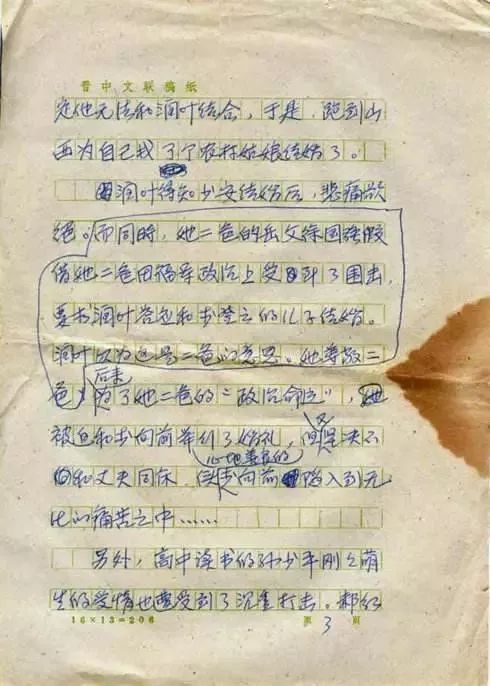 晋中文联稿纸
定他无法和润叶结合，于是，跑到山
西为自己找了个农村姑娘结婚了。
润叶得知少安结婚后，悲痛欲
绝。而同时，她二爸的岳父徐国强假
借她二爸田福军政治上受到了围击，
要求润叶答应和李登云的儿子结婚。
润叶以为这是二爸的意思。她尊敬二
爸，后来为了她二爸的“政治命运”，
被迫和李向前举行了婚礼，但又决不
和丈夫同床，使心地善良的李向前陷入到无
比的痛苦之中……
另外，高中读书的孙少平刚刚萌
生的爱情也遭受到了沉重打击。郝红
16×13=206 第 3 页